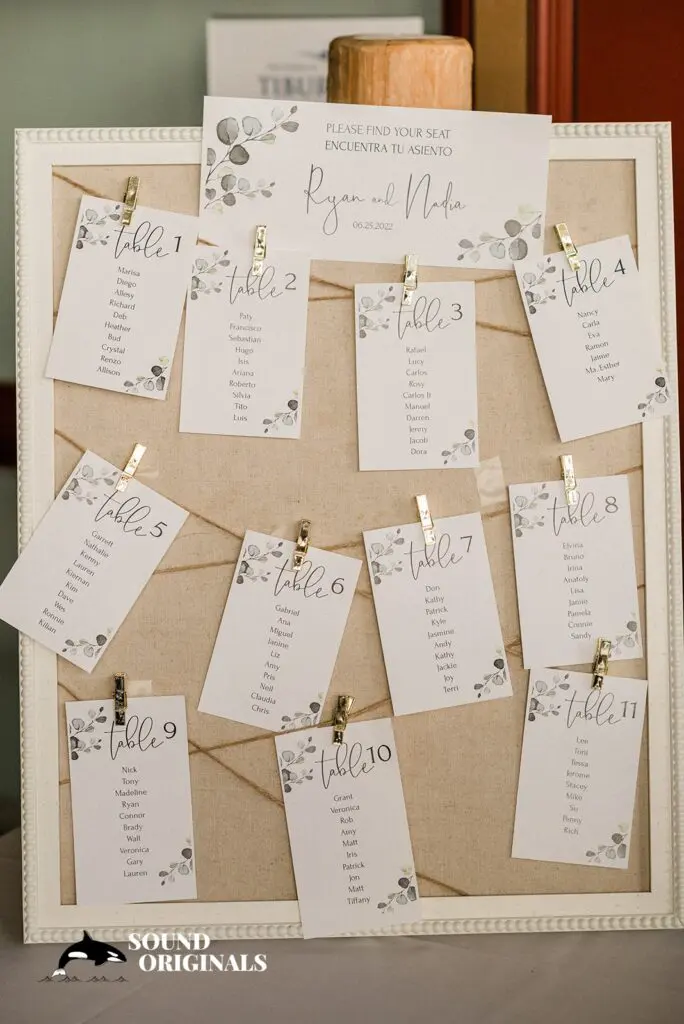 TIBUR
PLEASE FIND YOUR SEAT
ENCUENTRA TU ASIENTO
Ryan and Nadia
06.25.2022
table 1
Marisa
Diego
Allesy
Richard
Deb
Heather
Bud
Crystal
Renzo
Allison
table 2
Paty
Francisco
Sebastian
Hugo
Isis
Ariana
Roberto
Silvia
Tito
Luis
table 3
Rafael
Lucy
Carlos
Rosy
Carlos Jr
Manuel
Darren
Jenny
Jacob
Dora
table 4
Nancy
Carla
Eva
Ramon
Jaime
Ma. Esther
Mary
table 5
Garrett
Nathalie
Kenny
Lauren
Kiernan
Kim
Dave
Wes
Ronnie
Kilian
table 6
Gabriel
Ana
Miguel
Janine
Liz
Amy
Pris
Nell
Claudia
Chris
table 7
Don
Kathy
Patrick
Kyle
Jasmine
Andy
Kathy
Jackie
Joy
Terri
table 8
Elvina
Bruno
Irina
Anatoly
Lisa
Jamin
Pamela
Connie
Sandy
table 9
Nick
Tony
Madeline
Ryan
Connor
Brady
Walt
Veronica
Gary
Lauren
table 10
Grant
Veronica
Rob
Amy
Matt
Iris
Patrick
Jon
Matt
Tiffany
table 11
Lee
Toni
Tessa
Jerome
Stacey
Mike
Su
Penny
Rich
SOUND
ORIGINALS